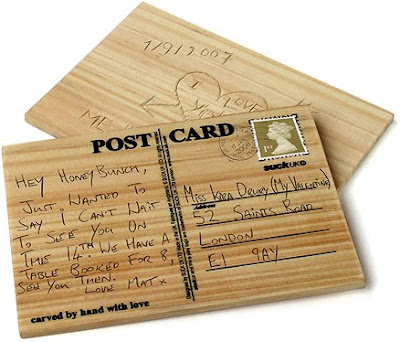 1/9/2007
I
ME
POST CARD
1ST
suck UK
HEY HONEYBUNCH,
JUST WANTED TO
SAY I CAN'T WAIT
TO SEE YOU ON
THE 14TH. WE HAVE A
TABLE BOOKED FOR 8,
SEE YOU THEN.
LOVE MAT x
carved by hand with love
MISS KARA DRURY (MY VALENTINE)
Address
52 SAINTS ROAD
LONDON
E1 9AY